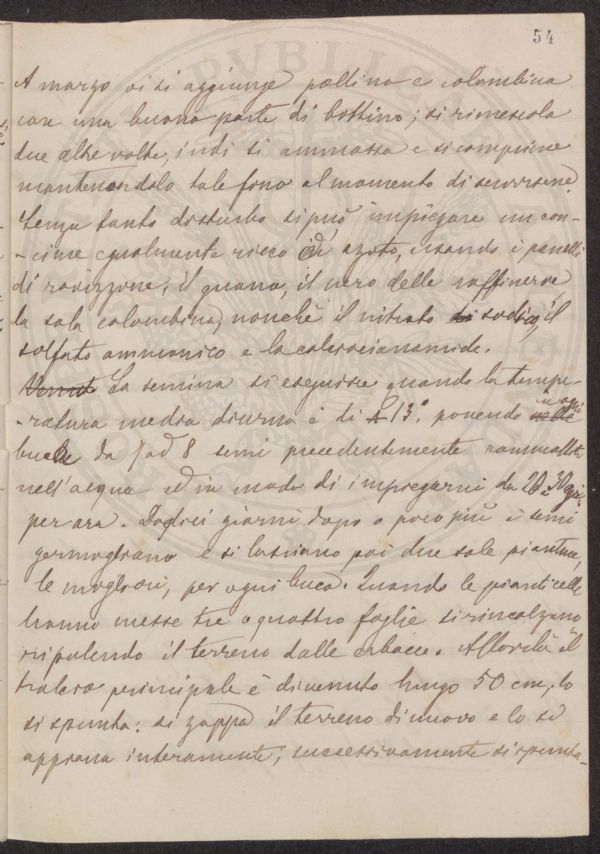 54
A marzo vi si aggiunge pollina e colombina
con una buona parte di bottino; si rimescola
due altre volte, indi si ammassa e si comprime
mantenendolo tale fino al momento di servirsene.
Senza tanto disturbo si può impiegare un con-
-cime egualmente ricco di azoto, usando i panelli
di ravizzone, il guano, il nero delle raffinerie
la sola colombina, nonchè il nitrato di sodico, il
solfato ammonico e la calciocianamide.
La semina si eseguisce quando la tempe-
-ratura media diurna è di 13°. ponendo nelle in ogni
buca da 7 ad 8 semi precedentemente rammolliti
nell'acqua ed in modo di impiegarni da 20 a 30 gr.
per ara. Dodici giorni dopo o poco più i semi
germogliano e si lasciano poi due sole piantine,
le migliori, per ogni buca. Quando le pianticelle
hanno messe tre o quattro foglie si rincalzano
ripulendo il terreno dalle erbacce. Allorchè il
tralcio principale è divenuto lungo 50 cm, lo
si spunta: si zappa il terreno di nuovo e lo si
appiana interamente; successivamente si spunta-